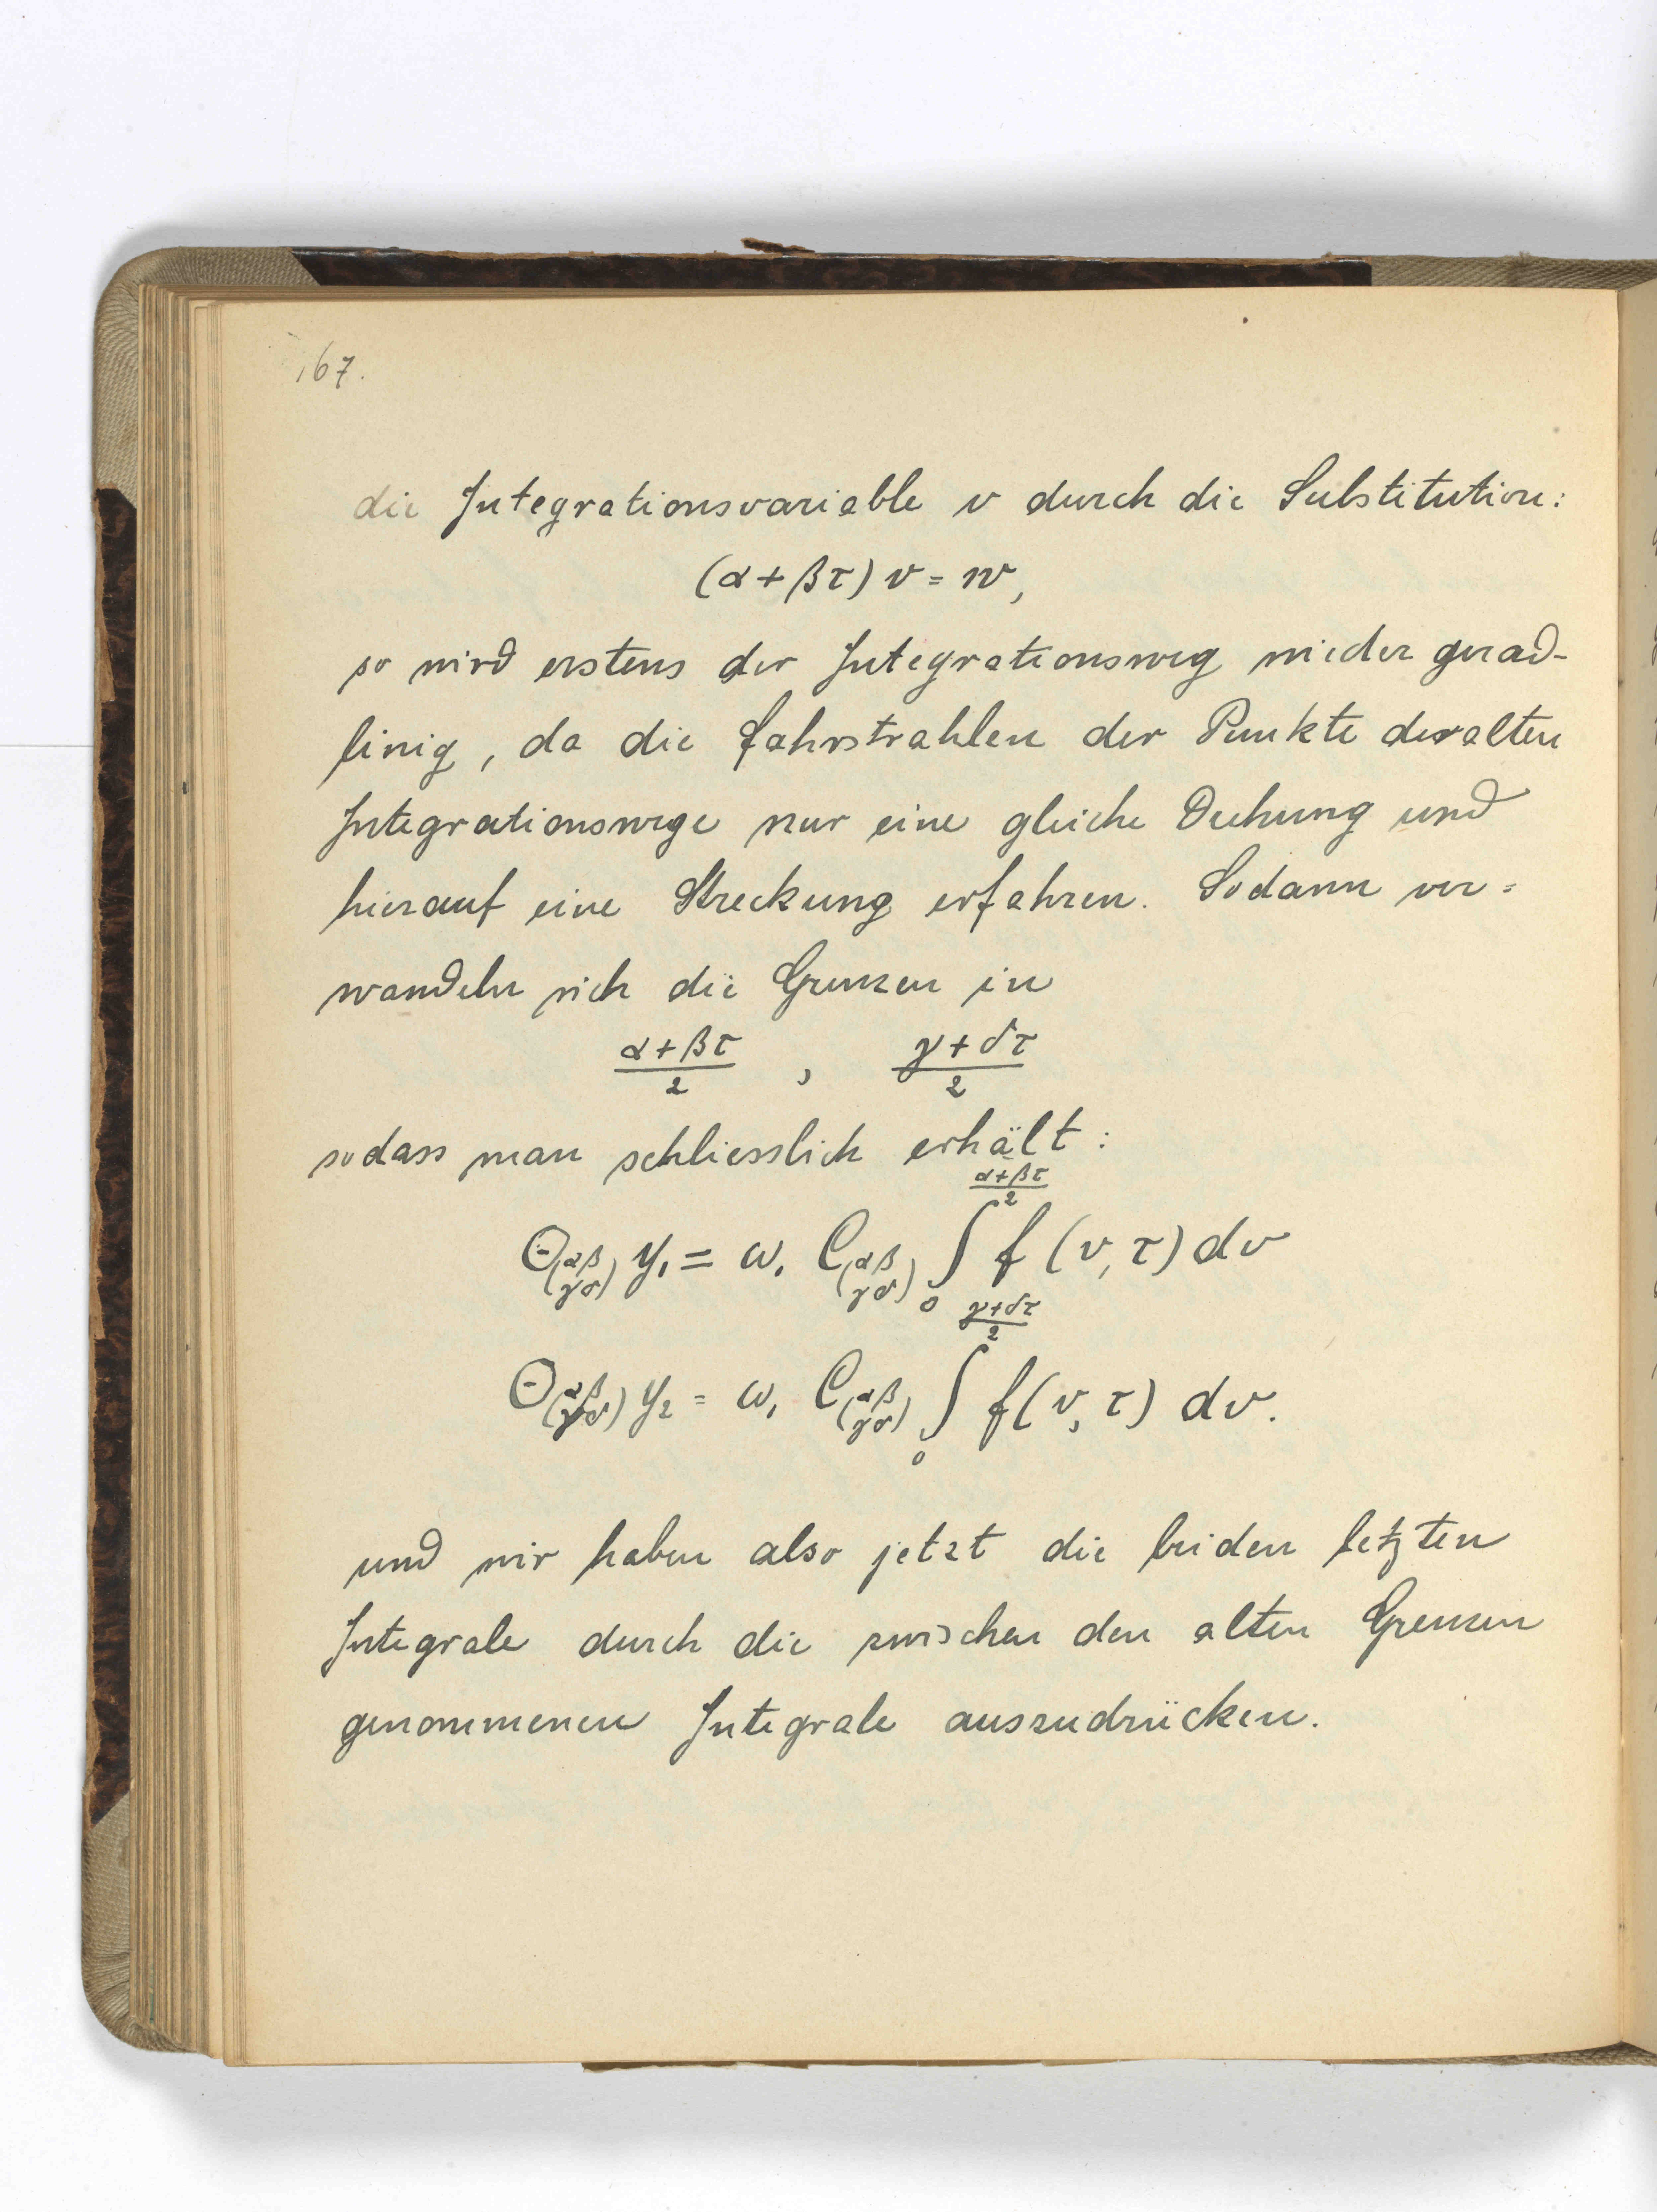 167.
die Integrationsvariable v durch die Substitution:
(α+βτ) v = w,
so wird erstens der Integrationsweg wieder grad-
linig, da die Fahrstrahlen der Punkte der alten
Integrationswege nur eine gleiche Drehung und
hierauf eine Streckung erfahren. Sodann ver=
wandeln sich die Grenzen in
(α+βτ)/2 , (γ+δτ)/2
sodass man schliesslich erhält:
Θ_(αβ γδ) y₁ = ω₁ C_(αβ γδ) ∫_0^((α+βτ)/2) f(v, τ) dv
Θ_(αβ γδ) y₂ = ω₁ C_(αβ γδ) ∫_0^((γ+δτ)/2) f(v, τ) dv.
und wir haben also jetzt die beiden letzten
Integrale durch die zwischen den alten Grenzen
genommenen Integrale auszudrücken.